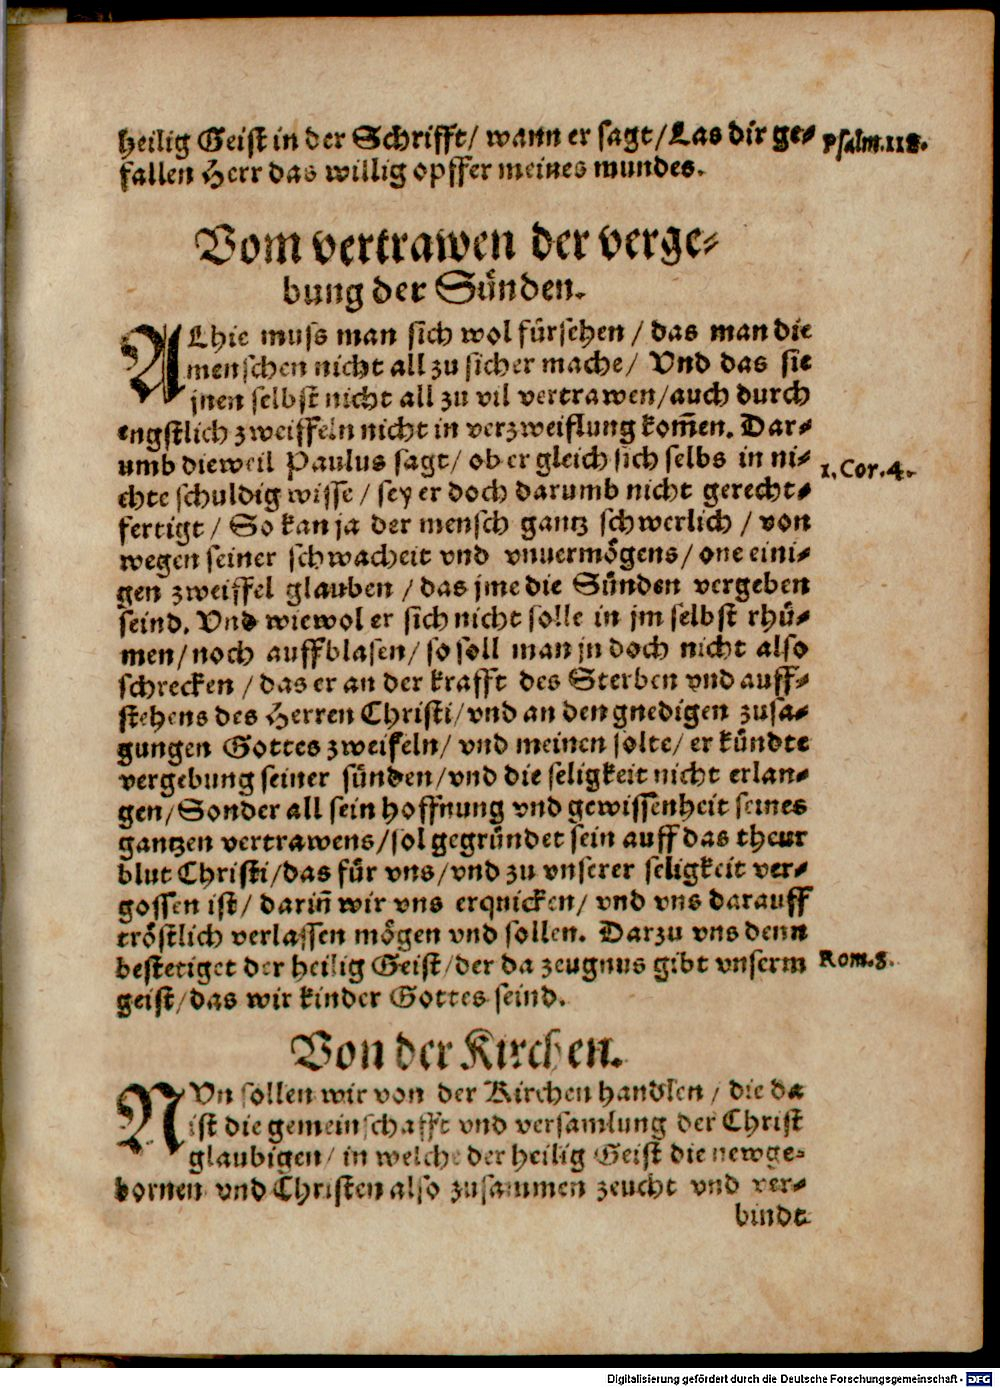 heilig Geist in der Schrifft/ wann er sagt/ Las dir ge- Psalm.118.
fallen Herr das willig opffer meines mundes.
Vom vertrawen der verge-
bung der Sünden.
ALhie muss man sich wol fürsehen / das man die
menschen nicht all zu sicher mache/ Vnd das sie
jnen selbst nicht all zu vil vertrawen/auch durch
engstlich zweiffeln nicht in verzweiflung kom̄en. Dar-
umb dieweil Paulus sagt/ ob er gleich sich selbs in ni- 1. Cor.4.
chte schuldig wisse / sey er doch darumb nicht gerecht-
fertigt / So kan ja der mensch gantz schwerlich / von
wegen seiner schwacheit vnd vnuermögens/ one eini-
gen zweiffel glauben / das jme die Sünden vergeben
seind. Vnd wiewol er sich nicht solle in jm selbst rhü-
men/noch auffblasen/ so soll man jn doch nicht also
schrecken / das er an der krafft des Sterben vnd auff-
stehens des Herren Christi/vnd an den gnedigen zusa-
gungen Gottes zweifeln/ vnd meinen solte/ er kündte
vergebung seiner sünden/vnd die seligkeit nicht erlan-
gen/Sonder all sein hoffnung vnd gewissenheit seines
gantzen vertrawens/sol gegründet sein auff das theur
blut Christi/das für vns/vnd zu vnserer seligkeit ver-
gossen ist/ darin̄ wir vns erquicken/ vnd vns darauff
tröstlich verlassen mögen vnd sollen. Darzu vns denn
bestetiget der heilig Geist/der da zeugnus gibt vnserm Rom.8.
geist/das wir kinder Gottes seind.
Von der Kirchen.
NVn sollen wir von der Kirchen handlen / die da
ist die gemeinschafft vnd versamlung der Christ
glaubigen/ in welche der heilig Geist die newge-
bornen vnd Christen also zusammen zeucht vnd ver-
bindt
Digitalisierung gefördert durch die Deutsche Forschungsgemeinschaft - DFG